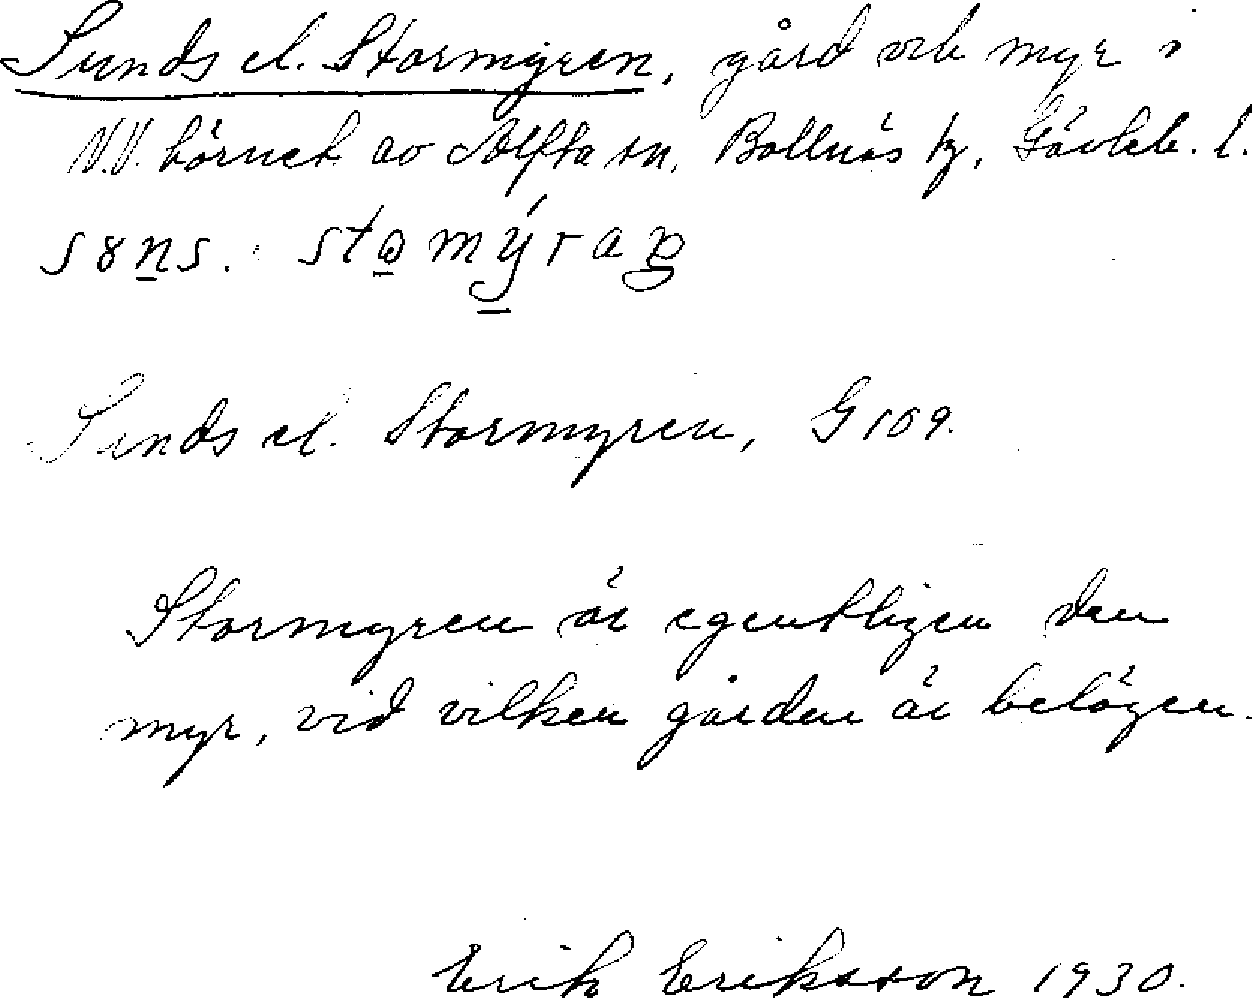 Sunds el. Stormyren, gård och myr i
N.V. hörnet av Alfta sn, Bollnäs tg, Gävleb. l.
Sunds el. Stormyren, G 109.
Stormyren är egentligen den
myr, vid vilken gården är belägen.
Erik Eriksson 1930.